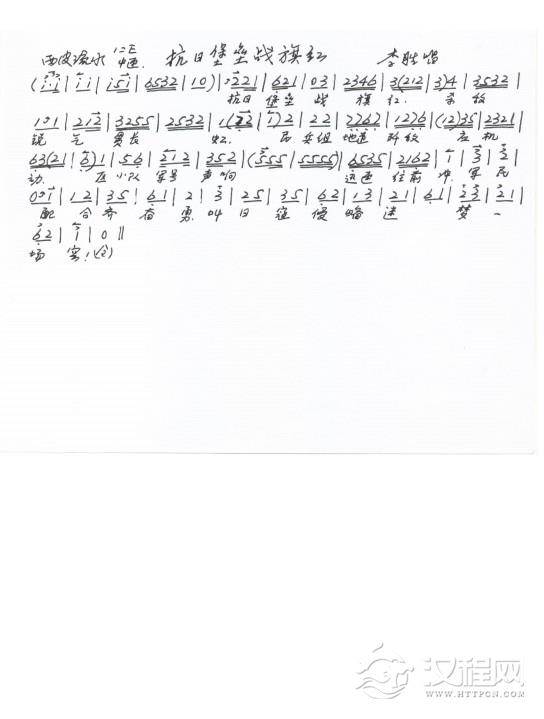 西皮流水 1=E 中速 抗日堡垒战旗红 李胜
( i i | i i | i 5 i | 6532 | 1 0 ) | 2 2 1 | 6 2 1 | 0 3 | 2346 | 3 (212 | 3) 4 | 3532 |
抗日 堡垒 战 旗 红. 杀敌
1 1 | 2 1 2 | 3255 | 2532 | 1 (22 | 1) 2 | 22 | 2767 | 1276 | (12)35 | 2321 |
锐气 贯长 虹. 民兵组 地道
63(21 | 6) 1 | 5 6 | 2 1 2 | 352 | (555 | 5555) | 6535 | 2162 | i | 3 | 2 |
动. 小队 军号 声响 迅速 往前冲. 军民
0 i | 1 2 | 3 5 | 6 1 | 2 | 3 | 2 5 | 3 5 | 6 2 | 1 3 | 2 1 | 6 1 | 2 3 | 2 1 |
配合 齐奋勇. 叫日寇 侵略迷梦 一
6 2 | i | 0 ||
场空!
汉程网
WWW.HTTPCN.COM